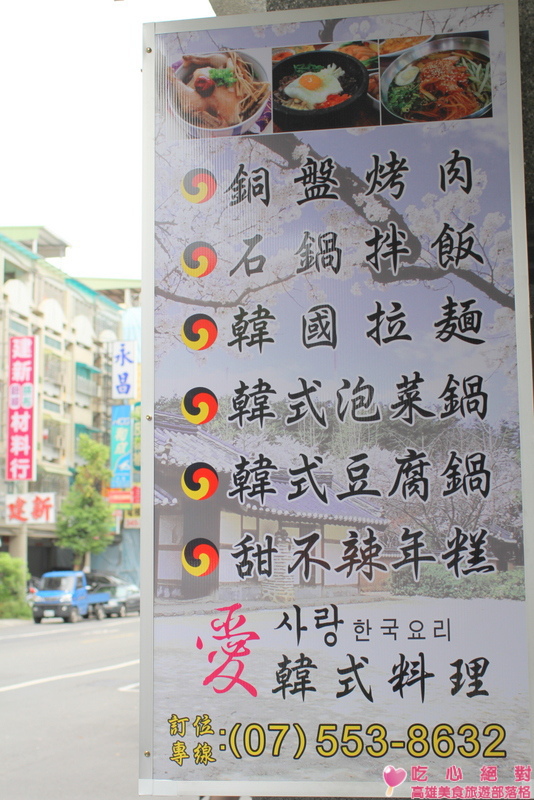 銅盤烤肉
石鍋拌飯
韓國拉麵
韓式泡菜鍋
韓式豆腐鍋
甜不辣年糕
愛 사랑 한국요리
韓式料理
訂位專線:(07) 553-8632
建新
材料行
建新
永昌
吃心絕對
高雄美食旅遊部落格